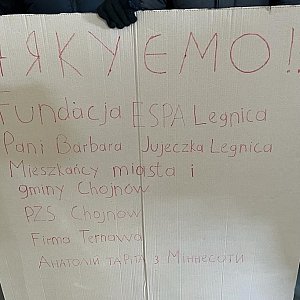 ДЯКУЄМО!!
Fundacja ESPA Legnica
Pani Barbara Jujeczka Legnica
Mieszkańcy miasta i
gminy Chojnów
PZS Chojnow
Firma Ternawa
АНАТОЛІЙ ТА РІТА З МІННЕСОТИ